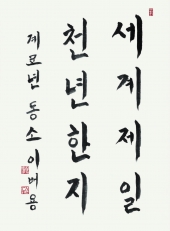 세계제일
천년한지
계묘년 동소 이버용